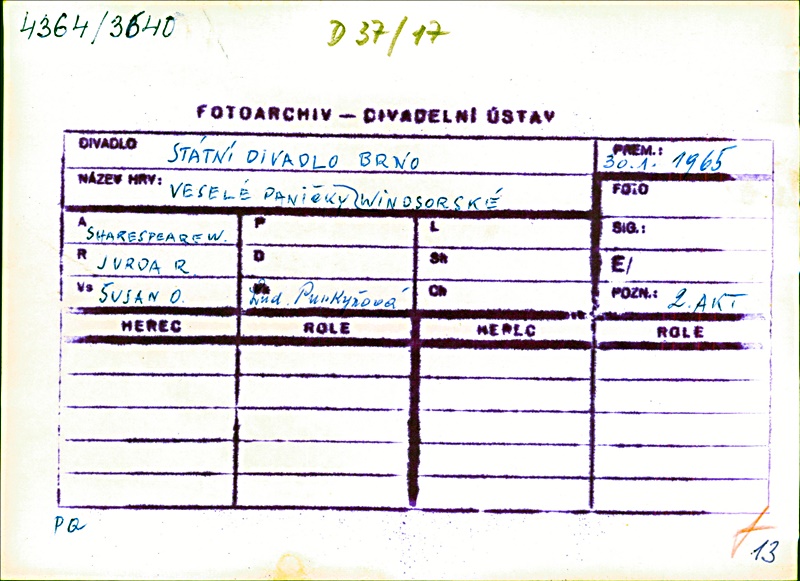 4364/3640
D 37/17
FOTOARCHIV — DIVADELNÍ ÚSTAV
DIVADLO STÁTNÍ DIVADLO BRNO
PREM.: 30.1. 1965
NÁZEV HRY: VESELÉ PANIČKY WINDSORSKÉ
FOTO
A SHAKESPEARE W.
P
L
SIG.:
R JURDA R
D
Sh
E/
Vs ŠUSAN O.
Lud. Purkyňová
Ch
POZN.: 2. AKT
HEREC ROLE HEREC ROLE
PQ
13